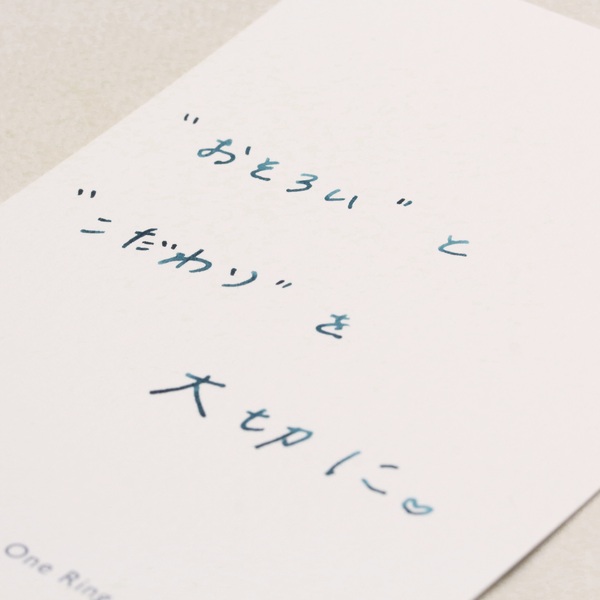 "おそろい" と
"こだわり" を
大切に♡
One Ring